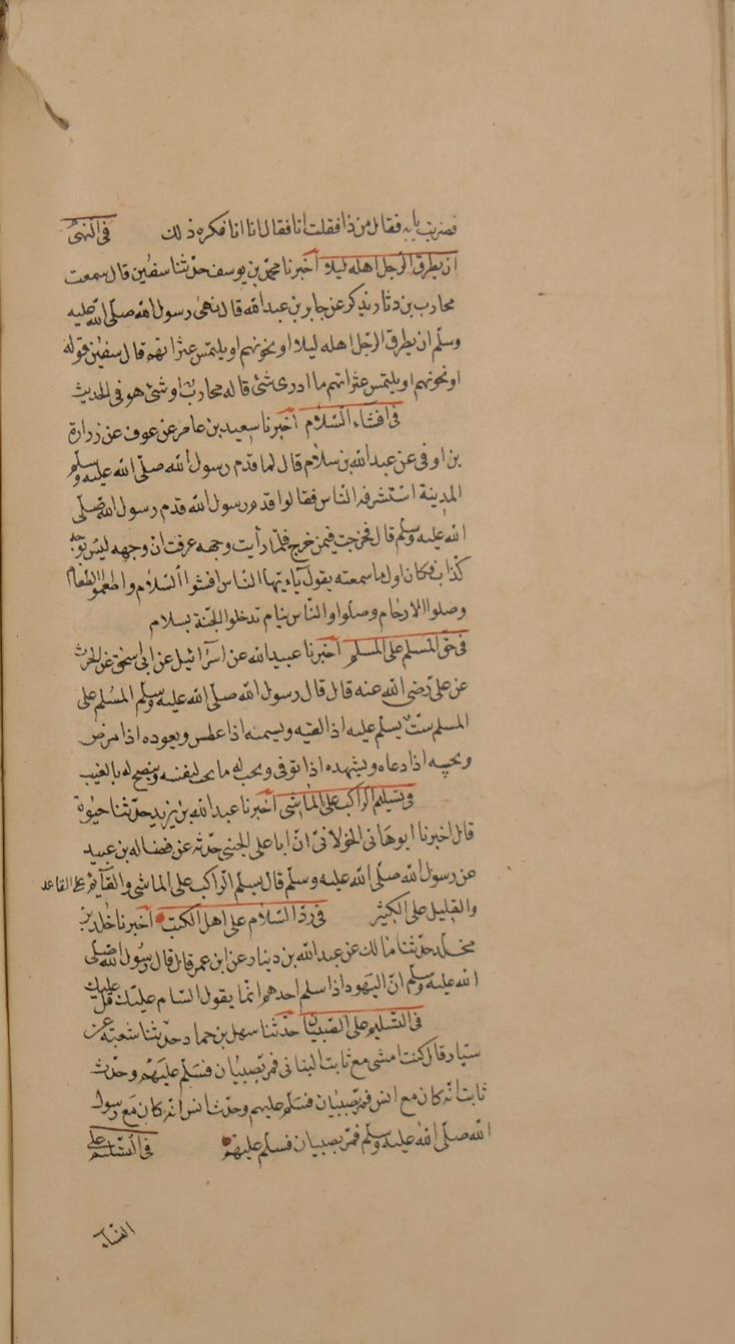 فضربت بابه فقال من ذا فقلت انا فقال انا انا فكره ذلك في النهي
ان يطرق الرجل اهله ليلا اخبرنا محمد بن يوسف حدثنا سفين قال سمعت
محارب بن دثار يذكر عن جابر بن عبد الله قال نهى رسول الله صلى الله عليه
وسلم ان يطرق الرجل اهله ليلا او يخونهم او يلتمس عثراتهم قال سفين قوله
او يخونهم او يلتمس عثراتهم ما ادرى شئ قاله محارب او شئ هو في الحديث
في افشاء السلام اخبرنا سعيد بن عامر عن عوف عن زرارة
بن اوفى عن عبد الله بن سلام قال لما قدم رسول الله صلى الله عليه وسلم
المدينة استشرفه الناس فقالوا قدم رسول الله قدم رسول الله صلى
الله عليه وسلم قال فخرجت فيمن خرج فلما رأيت وجهه عرفت ان وجهه ليس بوجه
كذاب فكان اول ما سمعته يقول يا ايها الناس افشوا السلام واطعموا الطعام
وصلوا الارحام وصلوا والناس نيام تدخلوا الجنة بسلام
في حق المسلم على المسلم اخبرنا عبيد الله عن اسرائيل عن ابى اسحق عن الحرث
عن على رضى الله عنه قال قال رسول الله صلى الله عليه وسلم المسلم على
المسلم ست يسلم عليه اذا لقيه ويسمته اذا عطس ويعوده اذا مرض
ويجيبه اذا دعاه ويشهده اذا توفى ويحب له ما يحب لنفسه وينصح له بالغيب
في تسليم الراكب على الماشى اخبرنا عبد الله بن يزيد حدثنا حيوة
قال اخبرنا ابو هانى الخولانى ان ابا على الجنبى حدثه عن فضاله بن عبيد
عن رسول الله صلى الله عليه وسلم قال يسلم الراكب على الماشى والقائم على القاعد
والقليل على الكثير في رد السلام على اهل الكتب اخبرنا خلد بن
مخلد حدثنا مالك عن عبد الله بن دينار عن ابن عمر قال قال رسول الله صلى
الله عليه وسلم ان اليهود اذا سلم احدهم انما يقول السام عليك قل عليك
في التسليم على الصبيان حدثنا سهل بن حماد حدثنا شعبة عن
سيار قال كنت امشى مع ثابت البنانى فمر بصبيان فسلم عليهم وحدث
ثابت انه كان مع انس فمر بصبيان فسلم عليهم وحدث انس انه كان مع رسول
الله صلى الله عليه وسلم فمر بصبيان فسلم عليهم في التسليم على
النساء